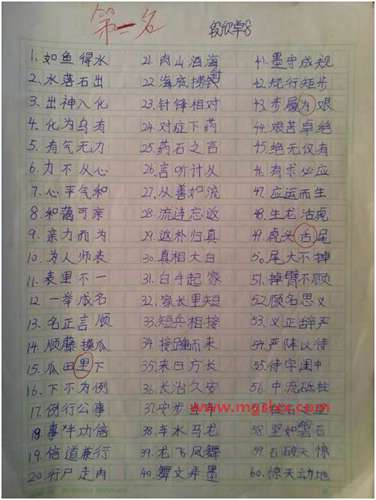 第一名
1. 如鱼得水
2. 水落石出
3. 出神入化
4. 化为乌有
5. 有气无力
6. 力不从心
7. 心平气和
8. 和蔼可亲
9. 亲力而为
10. 为人师表
11. 表里不一
12. 一举成名
13. 名正言顺
14. 顺藤摸瓜
15. 瓜田里下
16. 下不为例
17. 例行公事
18. 事半功倍
19. 倍道兼行
20. 行尸走肉
21. 肉山酒海
22. 海底捞针
23. 针锋相对
24. 对症下药
25. 药石之言
26. 言听计从
27. 从善如流
28. 流连忘返
29. 返朴归真
30. 真相大白
31. 白手起家
32. 家长里短
33. 短兵相接
34. 接踵而来
35. 来日方长
36. 长治久安
37. 安步当车
38. 车水马龙
39. 龙飞凤舞
40. 舞文弄墨
41. 墨守成规
42. 规行矩步
43. 步履为艰
44. 艰苦卓绝
45. 绝无仅有
46. 有求必应
47. 应运而生
48. 生龙活虎
49. 虎头舌尾
50. 尾大不掉
51. 掉臂不顾
52. 顾名思义
53. 义正辞严
54. 严阵以待
55. 待字闺中
56. 中流砥柱
58. 坚如磐石
59. 石破天惊
60. 惊天动地